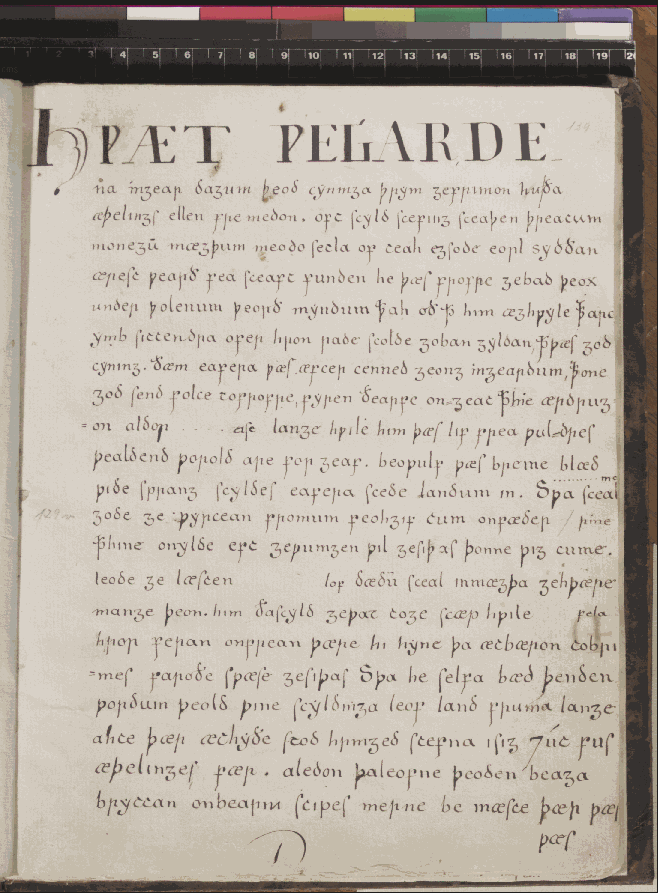 1 2 3 4 5 6 7 8 9 10 11 12 13 14 15 16 17 18 19 20
129
HǷÆT ǷEGARDE
na ingear dagum þeod cyninga þrym gefrunon huða
æþelings ellen fremedon. oft scyld scefing sceaþen þreatum
monegū mægþum meodo setla of teah egsode eorl syððan
ærest ƿearð fea sceaft funden he þæs frofre gebad ƿeox
under ƿolcnum ƿeorð myndum ꝥah oð ꝥ him æghƿylc ꝥara
ymb sittendra ofer hron rade scolde goban gyldan, ꝥ ƿæs god
cyning. ðæm eafera ƿæs æfter cenned geong ingeardum, ꝥone
god send folce tofrofre, fyren ðearfe on-geat ꝥ hie ærdrug
=on aldor . . . . . ase lange hƿile him þæs lif frea ƿul-dres
ƿealdend ƿorold are for geaf. beoƿulf ƿæs breme blæd
ƿide sprang scyldes eafera scede landum in. Sƿa sceal
me
129ᵛ
gode ge ƿyrcean fromum feohgif tum onfæder / rine
ꝥ hine onylde eft geƿunigen ƿil gesiþas þonne ƿig cume.
leode ge læsten lof dædū sceal inmægþa gehƿære
mange þeon. him ðascyld geƿat toge scæp hƿile fela
hror feran onfrean ƿære hi hyne þa ætbæron tobri
=mes faroðe sƿæse gesiþas Sƿa he selfa bæd þenden
ƿordum ƿeold ƿine scyldinga leof land fruma lange
ahte þær æthyðe stod hringed stefna isig ⁊ út fus
æþelinges fær. aledon þaleofne þeoden beaga
bryttan onbearm scipes merne be mæste þær ƿæs
ƿæs